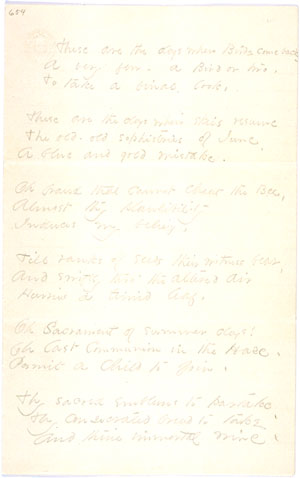 These are the days when Birds come back
A very few - a Bird or two,
To take a final look.
These are the days when skies resume
The old - old sophistries of June,
A blue and gold mistake.
Oh fraud that cannot cheat the Bee,
Almost thy plausibility
Induces my belief,
Till ranks of seeds their witness bear,
And softly thro' the altered air
Hurries a timid leaf.
Oh Sacrament of summer days!
Oh Last Communion in the Haze -
Permit a Child to join -
Thy sacred emblems to partake,
Thy consecrated bread to take
And thine immortal wine!